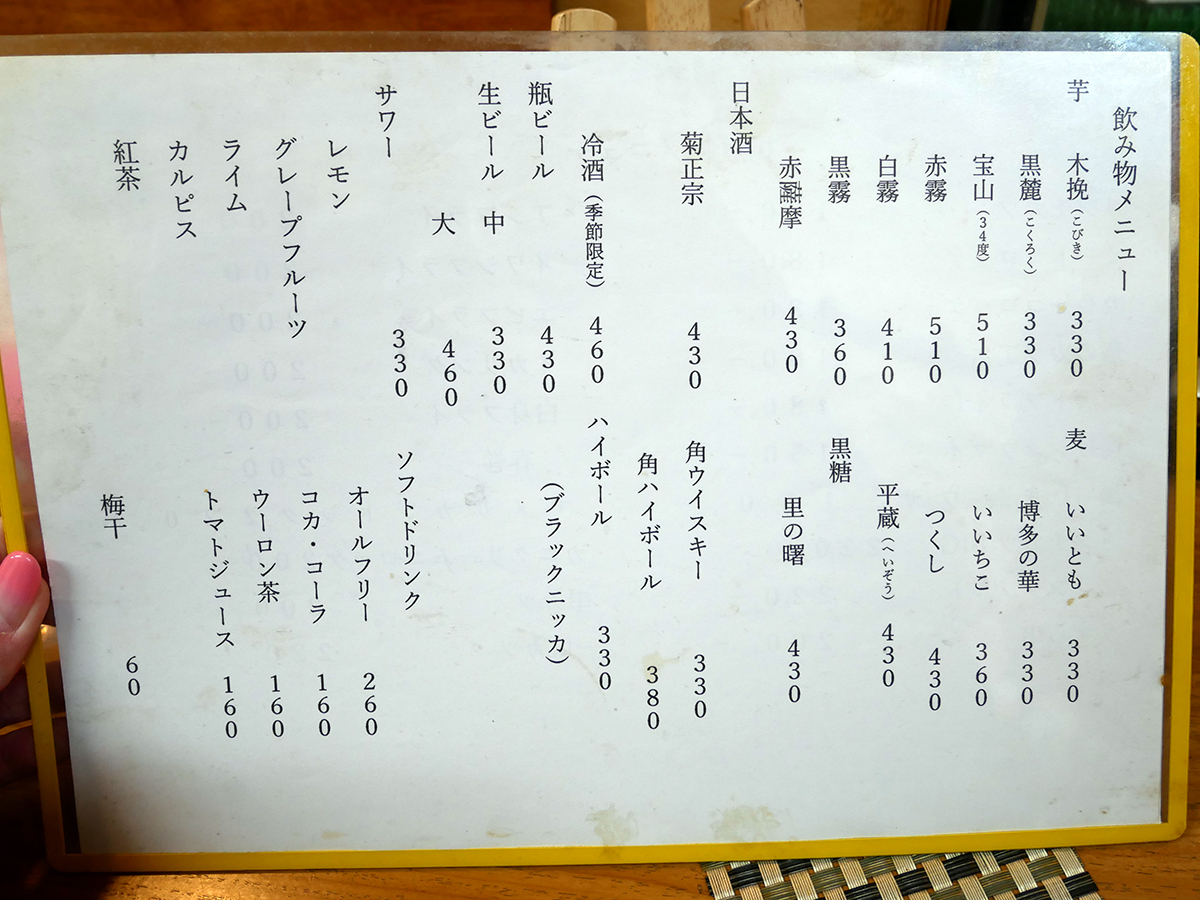 飲み物メニュー
芋 木挽(こびき) 330
黒麓(こくろく) 330
宝山(34度) 510
赤霧 510
白霧 410
黒霧 360
赤薩摩 430
日本酒
菊正宗 430
冷酒(季節限定) 460
瓶ビール 430
生ビール 中 330
大 460
サワー 330
レモン
グレープフルーツ
ライム
カルピス
紅茶
麦 いいとも 330
博多の華 330
いいちこ 360
つくし 430
平蔵(へいぞう) 430
黒糖
里の曙 430
角ウイスキー 330
角ハイボール 380
ハイボール 330
(ブラックニッカ)
ソフトドリンク
オールフリー 260
コカ・コーラ 160
ウーロン茶 160
トマトジュース 160
梅干 60